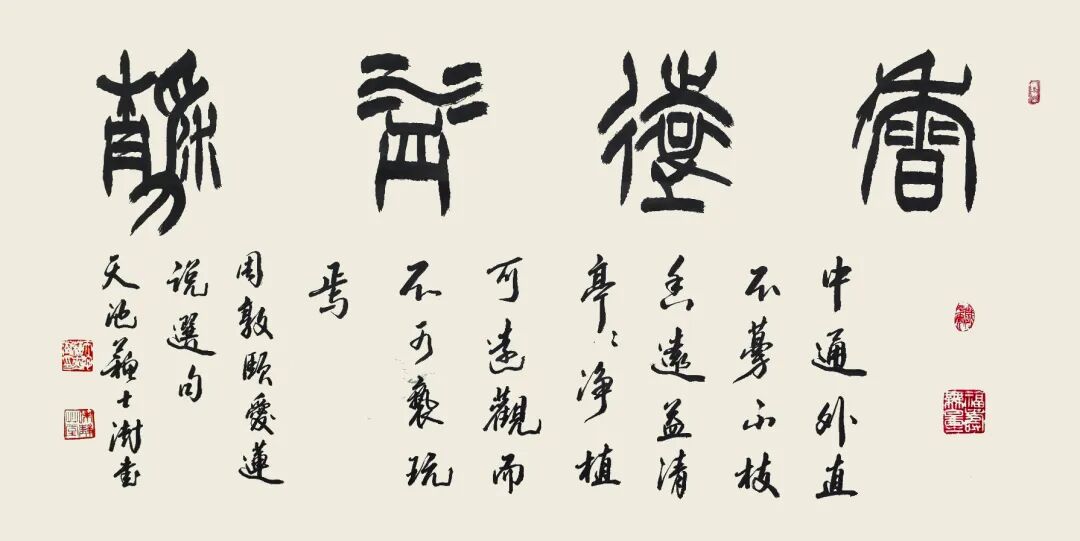 香遠益靜
中通外直
不蔓不枝
香遠益清
亭〻净植
可遠觀而
不可褻玩
焉
周敦頤愛蓮
說選句
天池蘇士澍書
福壽無量